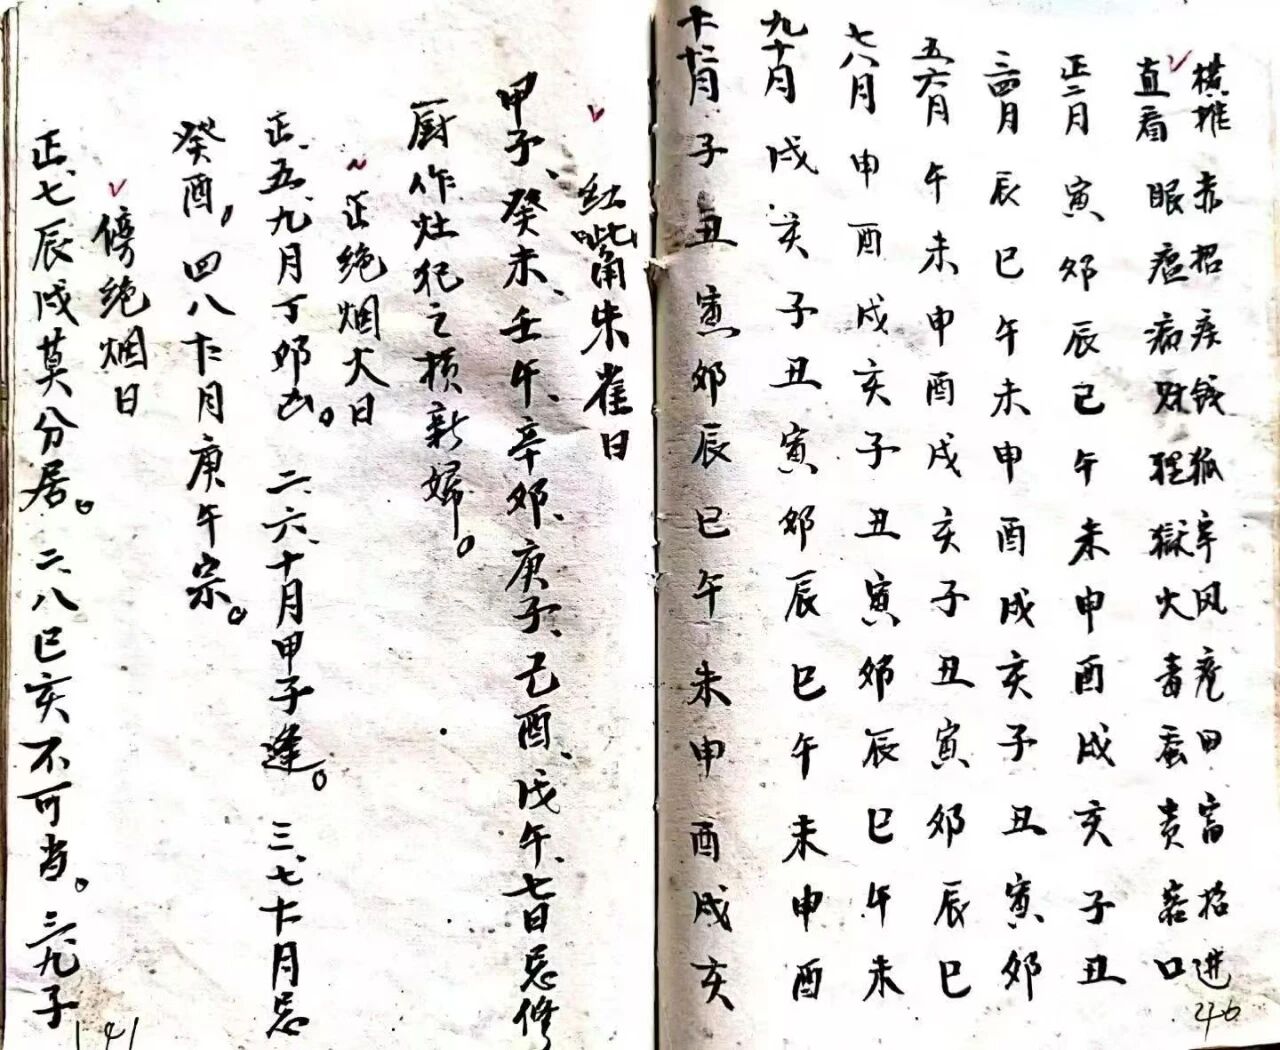 横推 赤招疾钱狐牢风疮田富招进
直看 眼瘟病财狸獄火毒蚕贵客口
正二月 寅卯辰巳午未申酉戌亥子丑
三四月 辰巳午未申酉戌亥子丑寅卯
五六月 午未申酉戌亥子丑寅卯辰巳
七八月 申酉戌亥子丑寅卯辰巳午未
九十月 戌亥子丑寅卯辰巳午未申酉
十十二月 子丑寅卯辰巳午未申酉戌亥
246
红嘴朱雀日
甲子、癸未、壬午、辛卯、庚子、己酉、戊午、七日忌修
厨作灶犯之损新婦。
正绝烟火日
正、五、九月丁卯凶。二、六、十月甲子逢。三、七、十一月忌
癸酉，四八十二月庚午宗。
傍绝烟日
正、七辰戌莫分居。二、八巳亥不可当。三、九子
141